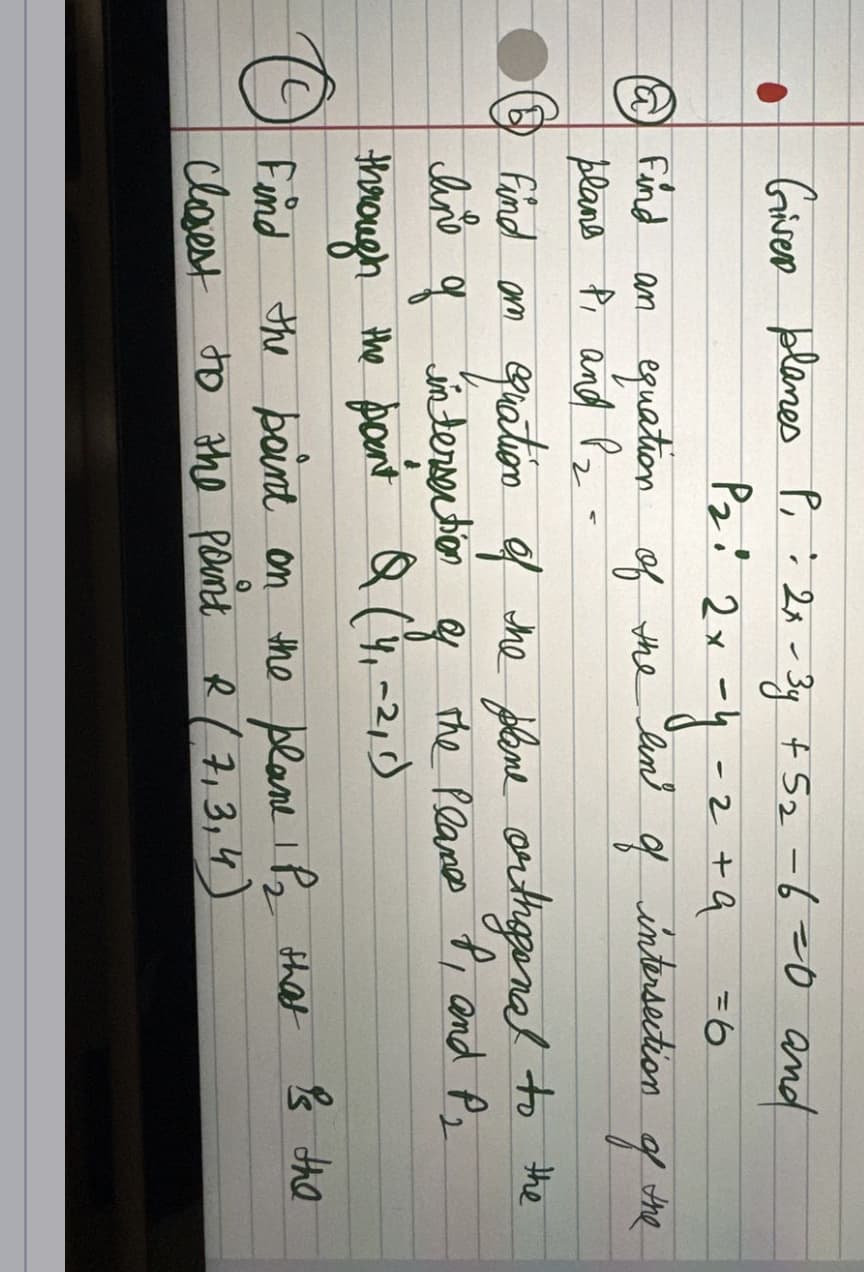 Given planes P₁ : 2x - 3y + 5z - 6 = 0 and
P₂ : 2x - y - z + 9 = 6
(a) Find an equation of the line of intersection of the
plane P₁ and P₂ -
(b) Find an equation of the plane orthogonal to the
line of intersection of the Planes P₁ and P₂
through the point Q (4, -2, 1)
(c) Find the point on the plane P₂ that is the
closest to the point R (7, 3, 4)